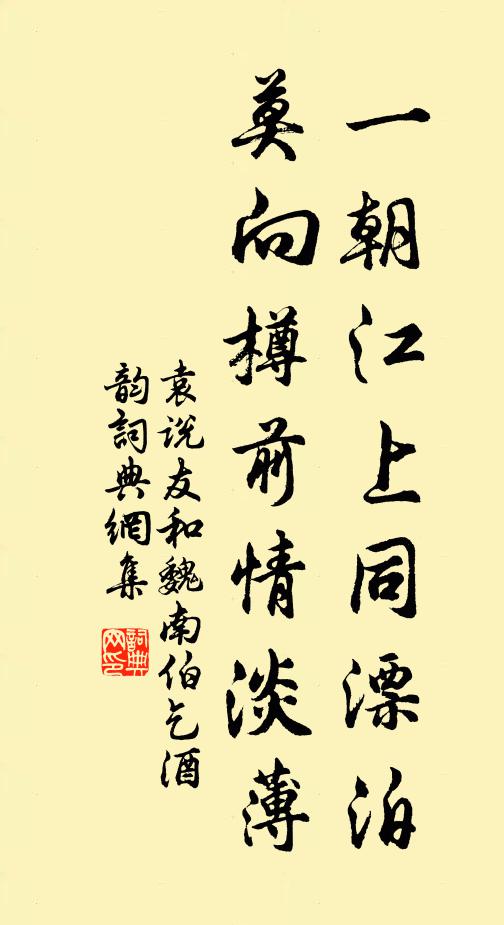 一朝江上同漂泊
莫向樽前情淡薄
袁说友和魏南伯乞酒
韵词典网集
词典
网印